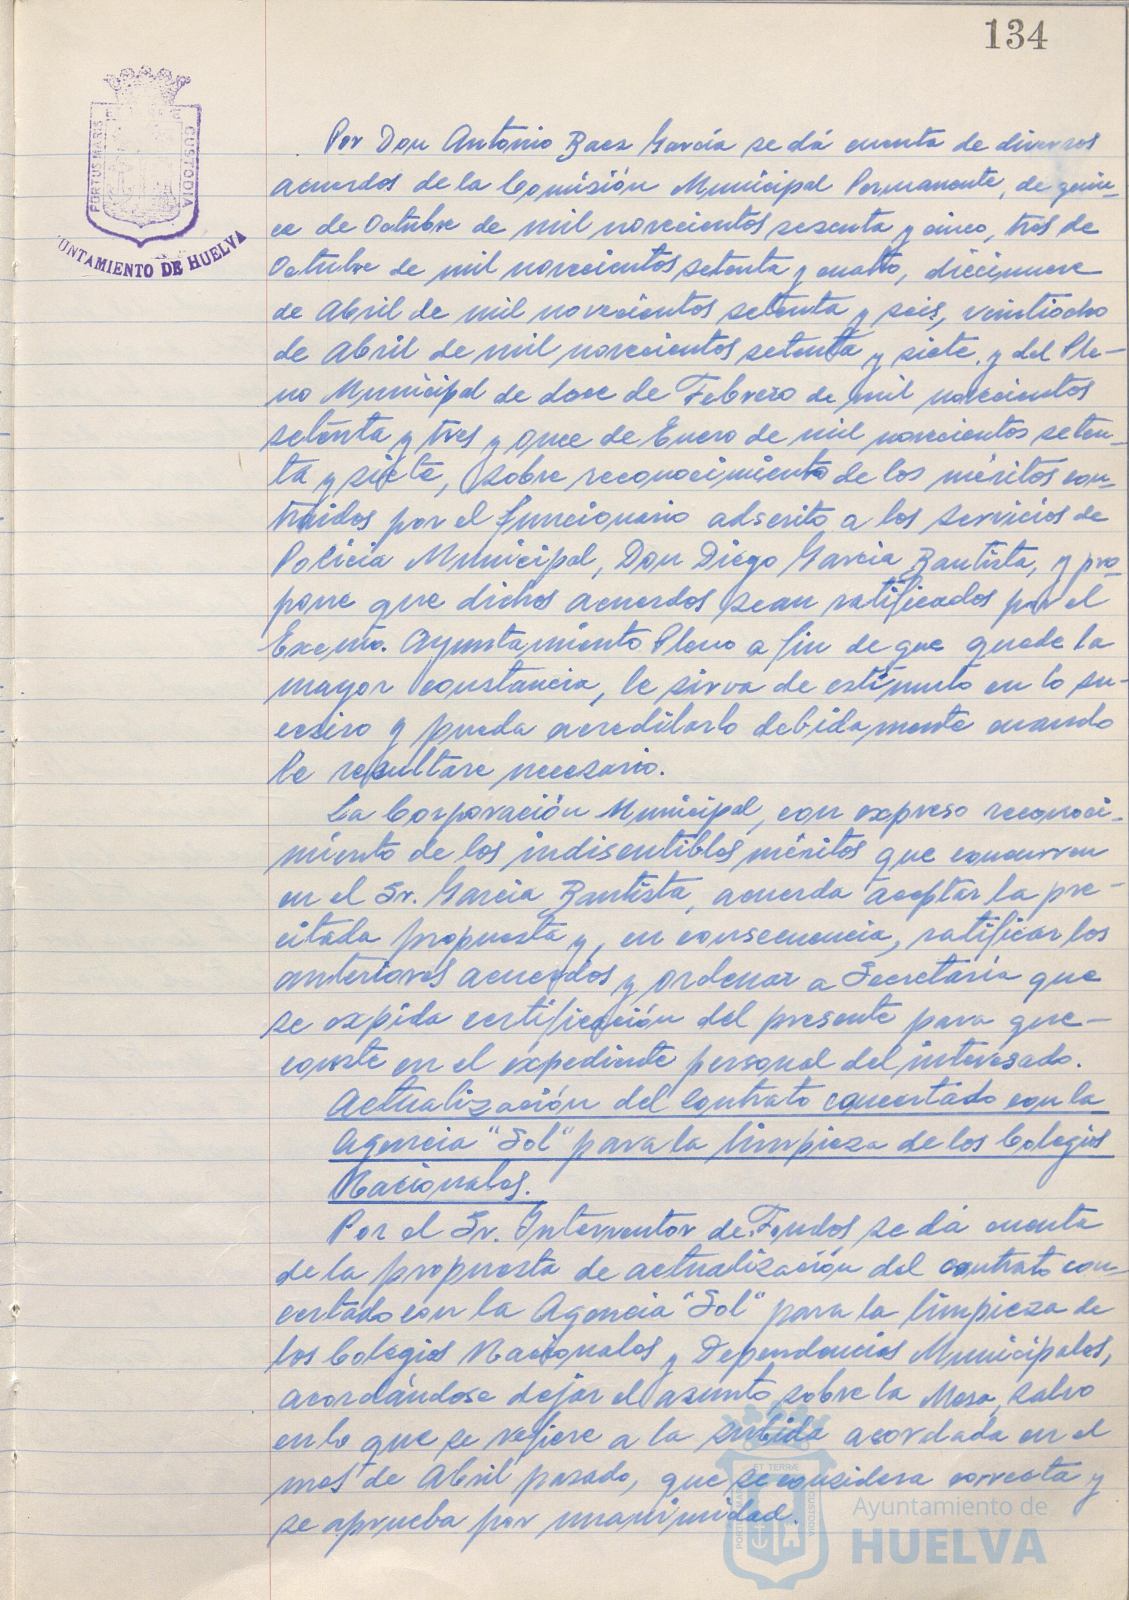 134
PORTUS MARIS
CUSTODIA
UNTAMIENTO DE HUELVA
Por Don Antonio Baez García se dá cuenta de diversos
acuerdos de la Comisión Municipal Permanente, de quin-
ce de Octubre de mil novecientos sesenta y cinco, tres de
Octubre de mil novecientos setenta y cuatro, diecinueve
de Abril de mil novecientos setenta y seis, veintiocho
de Abril de mil novecientos setenta y siete, y del Ple-
no Municipal de doce de Febrero de mil novecientos
setenta y tres y once de Enero de mil novecientos seten-
ta y siete, sobre reconocimiento de los méritos con-
traidos por el funcionario adscrito a los servicios de
Policia Municipal, Don Diego García Bautista, y pro-
pone que dichos acuerdos sean ratificados por el
Excmo. Ayuntamiento Pleno a fin de que quede la
mayor constancia, le sirva de estímulo en lo su-
cesivo y pueda acreditarlo debidamente cuando
le resultare necesario.
La Corporación Municipal, con expreso reconoci-
miento de los indiscutibles méritos que concurren
en el Sr. García Bautista, acuerda aceptar la pre-
citada propuesta y, en consecuencia, ratificar los
anteriores acuerdos y ordenar a Secretaría que
se expida certificación del presente para que-
conste en el expediente personal del interesado.
Actualización del contrato concertado con la
Agencia "Sol" para la limpieza de los Colegios
Nacionales.
Por el Sr. Interventor de Fondos se dá cuenta
de la propuesta de actualización del contrato con-
certado con la Agencia "Sol" para la limpieza de
los Colegios Nacionales y Dependencias Municipales,
acordándose dejar el asunto sobre la Mesa, salvo
en lo que se refiere a la subida acordada en el
mes de Abril pasado, que se considera correcta y
se aprueba por unanimidad.
ET TERRÆ
CUSTODIA
Ayuntamiento de
HUELVA